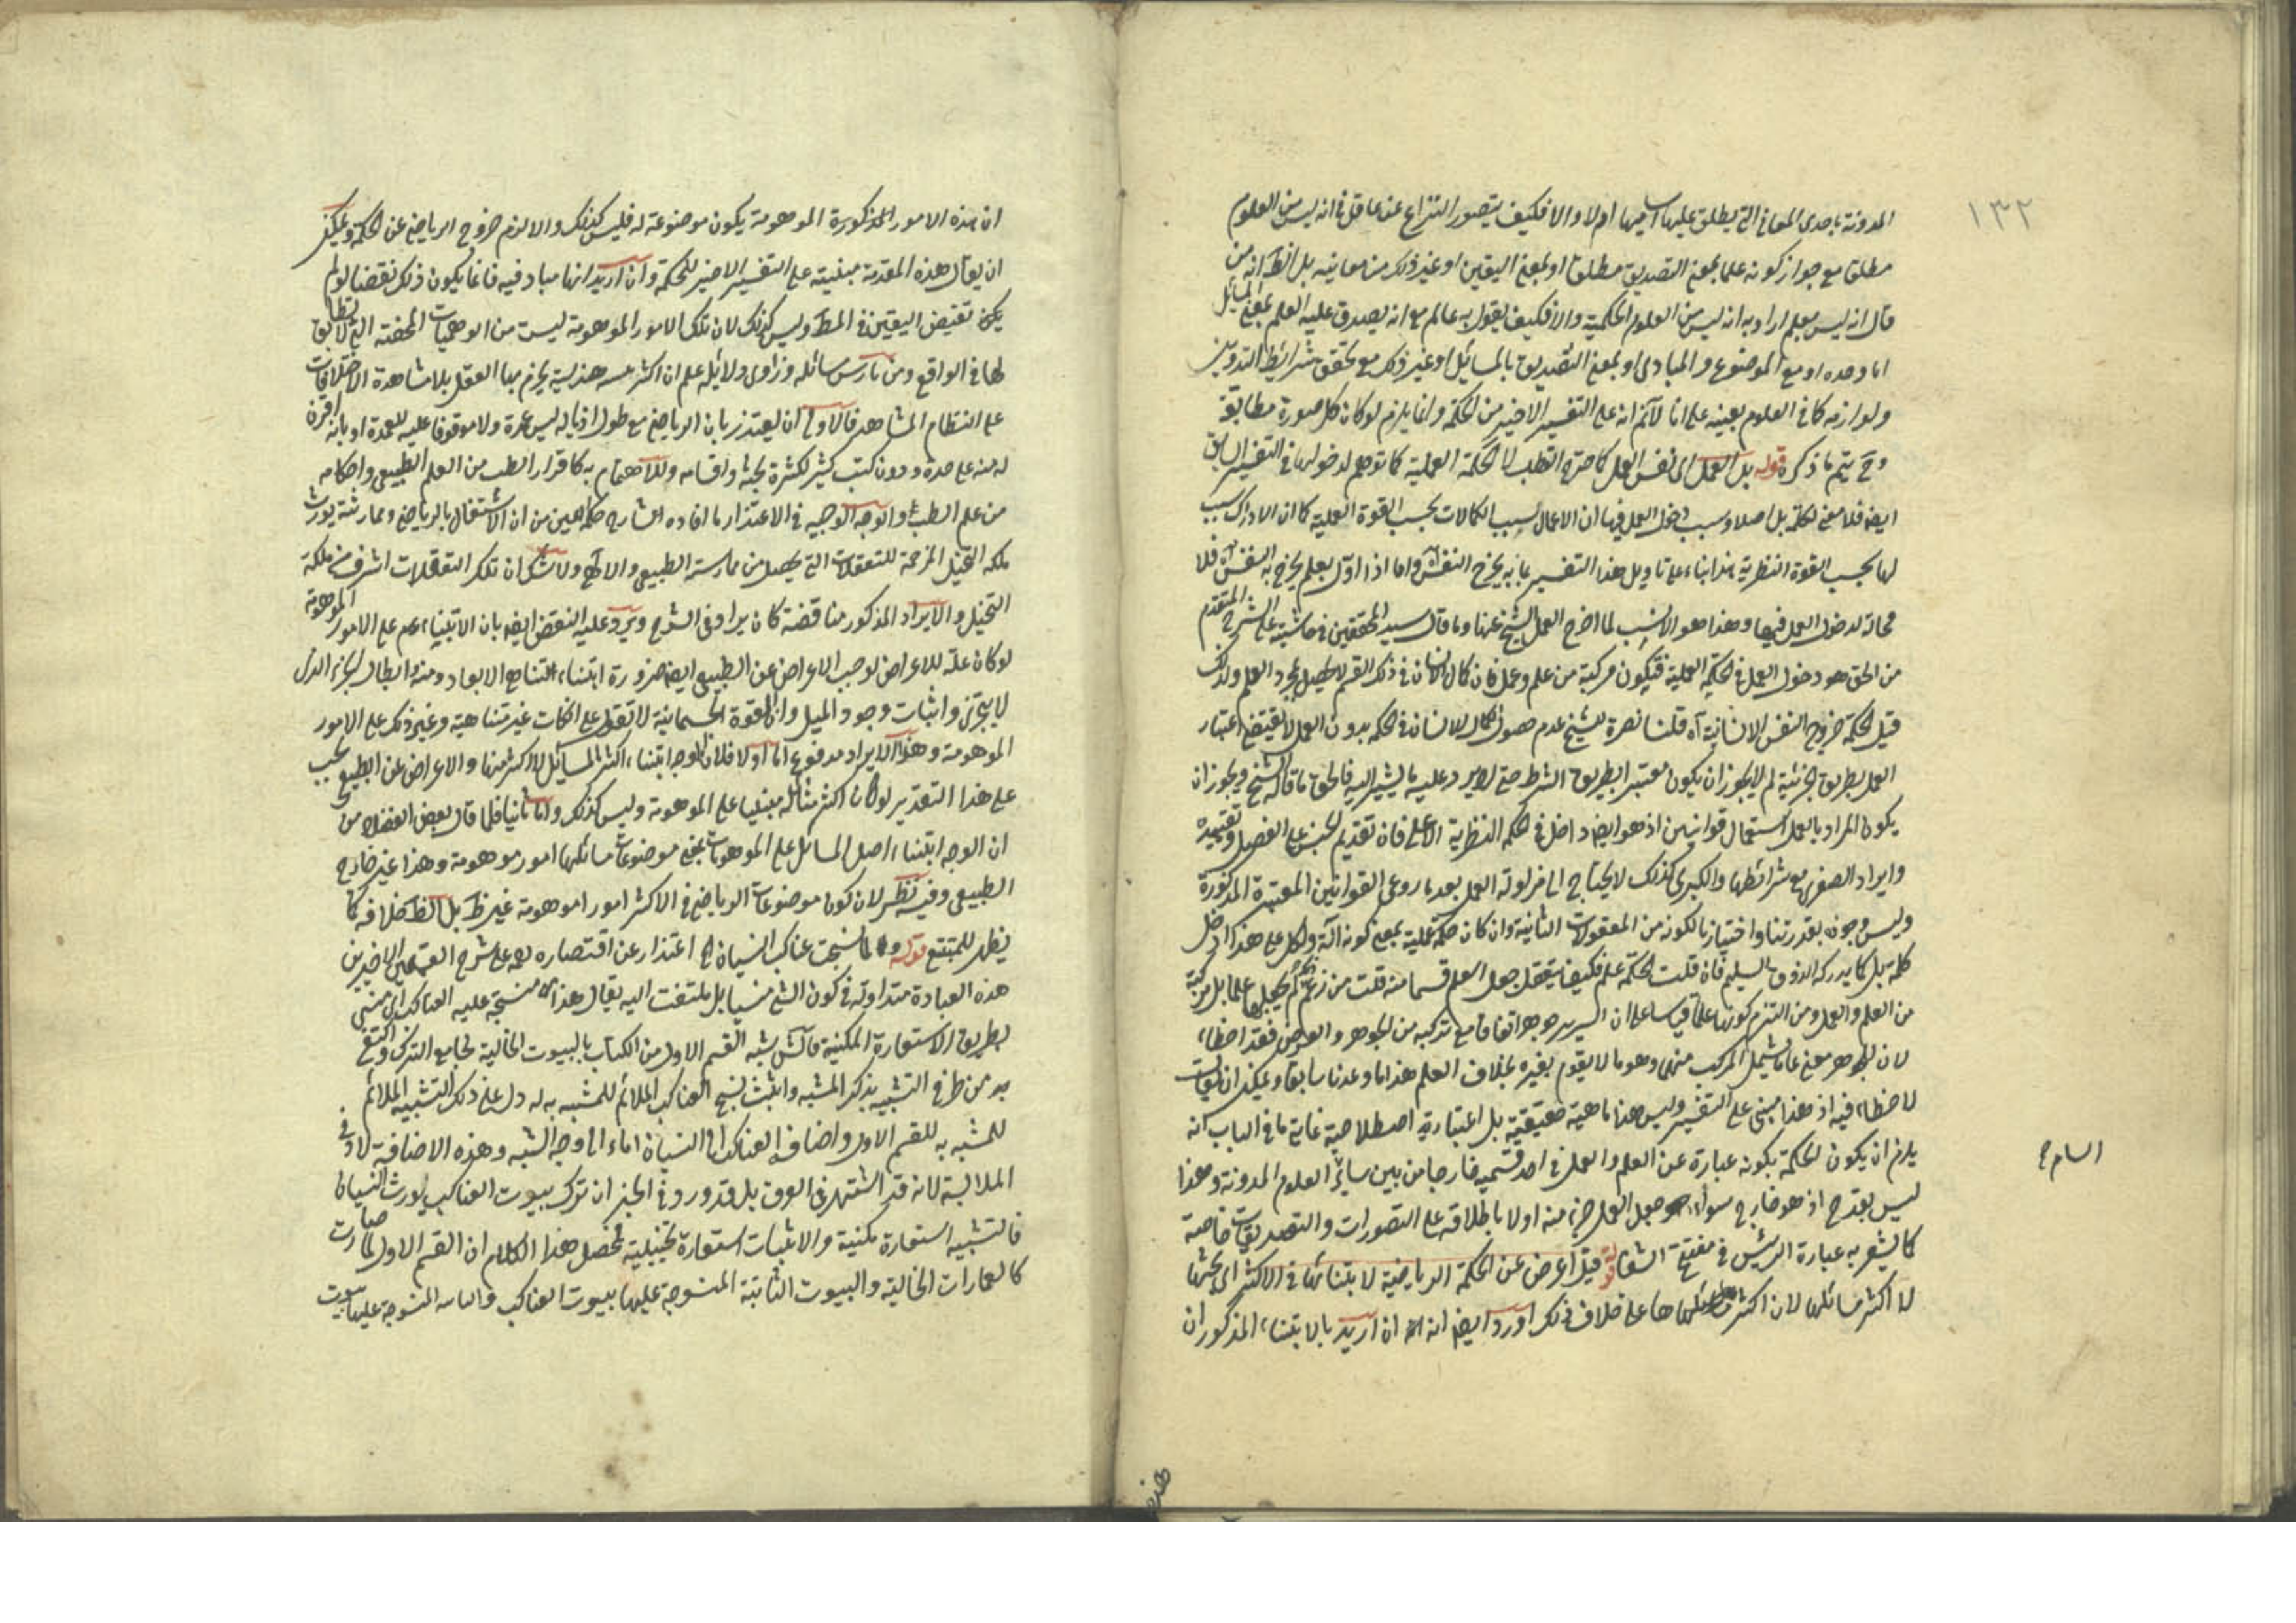 ١٣٢
المدونة باحدى المعاني التي يطلق عليها اساميها اولا والا فكيف يتصور النزاع عن عاقل في انه ليس من العلوم
مطلقا مع جواز كونه علما بمعنى التصديق مطلقا او بمعنى اليقين او غير ذلك من معانيه بل الظ انه من
قال انه ليس بعلم اراد به انه ليس من العلوم الحكمية والا فكيف يقول به عالم مع انه يصدق عليه العلم بمعنى المسائل
اما وحده او مع الموضوع والمبادى او بمعنى التصديق بالمسائل او غير ذلك مع تحقق شرائط التدوين
ولوازمه كما في العلوم بعينه على انا لا نم انه على التفسير الاخير من الحكمة وانما يلزم لو كان كل صورة مطابقة
وح يتم ما ذكره قوله بل العمل اى نفس العمل كما صرح القطب لا الحكمة العملية كما توهم لدخولها في التفسير السابق
ايضا فلا معنى لكلمة بل اصلا وسبب دخول العمل فيها ان الاعمال سبب الكمالات بحسب القوة العملية كما ان الادراك سبب
لها بحسب القوة النظرية هذا بناء على تاويل هذا التفسير بما به يخرج النفس آه واما اذا اول بعلم يخرج به النفس آه فلا
محالة لدخول العمل فيها وهذا هو الانسب لما اخرج العمل الشيخ عنها وما قال سيد المحققين في حاشيته على الشرح المتقدم
من الحق هو دخول العمل في الحكمة العملية فتكون مركبة من علم وعمل فان كمال الانسان في ذلك القسم لا يحصل بمجرد العلم ولذلك
قيل الحكمة خروج النفس الانسانية آه قلنا نصرة للشيخ عدم حصول الكمال للانسان في الحكمة بدون العمل لا يقتضى اعتبار
العمل بطريق الجزئية لم لا يجوز ان يكون معتبرا بطريق الشرط حتى لا يرد عليه ما يشير اليه فالحق ما قاله الشيخ ويجوز ان
يكون المراد بالعمل استعمال قوانين اذ هو ايضا داخل في الحكمة النظرية الاعلى فان تقديم الجنس على الفصل وتقييده
وايراد الصغرى مع شرائطها والكبرى كذلك لا يحتاج الى مزاولة العمل بعد ما روعى القوانين المعتبرة المذكورة
وليس وجوده بقدرتنا واختيارنا لكونه من المعقولات الثانية وان كان حكمة عملية بمعنى كونه آلة ولكل على هذا ادخل
كلمة بل كما يدركه الذوق السليم فان قلت الحكمة علم فكيف يتعقل جعل العلم قسما منه قلت من زعم لم يجعلها علما بل مركبة
من العلم والعمل ومن التزم كونها علما قياسا على ان السرير جوهر اتفاقا مع تركبه من الجوهر والعرض فقد اخطاء
لان الجوهر معنى عاما يشمل المركب منهما وهو ما لا يقوم بغيره بخلاف العلم هذا ما وعدنا سابقا ويمكن ان يقال
لا خطاء فيه اذ هذا مبنى على التفسير وليس هنا ماهية حقيقية بل اعتبارية اصطلاحية غاية ما في الباب انه
يلزم ان يكون الحكمة بكونه عبارة عن العلم والعمل في احد قسميه خارجا من بين سائر العلوم المدونة وهذا
ليس بقدح اذ هو خارج سواء جعل العمل جزءا منه اولا باطلاقه على التصورات والتصديقات خاصة
كما يشعر به عبارة الرئيس في مفتتح الشفا قوله قيل اعرض عن الحكمة الرياضية لابتنائها في الاكثر اى بحثها
لا اكثر مسائلها لان اكثر مسائلها على خلاف ذلك اورد ايضا انه ان اريد بالابتناء المذكور ان
هذه
ان هذه الامور المذكورة الموهومة يكون موضوعة له فليس كذلك والا لزم خروج الرياضى عن الحكمة ويمكن
ان يقال هذه المقدمة مبنية على التفسير الاخير للحكمة وان اريد انها مباد فيه فانما يكون ذلك نقضا لو لم
يكن نقيض اليقين في المط وليس كذلك لان تلك الامور الموهومة ليست من الوهميات المحضة التى لا تطابق
لها في الواقع ومن مارس مسائله وزاول دلائله علم ان اكثر هندسية يجزم بها العقل بلا مشاهدة الاختلافات
على النظام المشاهد فالاولى ان يعتذر بان الرياضى مع طول اذياله ليس عمدة ولا موقوفا عليه للعمدة او بانه افرز
له منه على حدة ودون كتب كثير لكثرة بحثه واقسامه وللاهتمام به كافراز الطب من العلم الطبيعى واحكامه
من علم الطب والوجه الوجيه في الاعتذار ما افاده الشارح حكمة العين من ان الاشتغال بالرياضى وممارسته يورث
ملكة التخيل المزحمة للتعقلات التى يحصل من ممارسة الطبيعى والالهى ولا شك ان تلك التعقلات اشرف من ملكة
التخيل والايراد المذكور مناقضة كان يراد في الشرح ويرد عليه النقض ايضا بان الابتناء اعم على الامور الموهومة
لو كان علة للاعراض لوجب الاعراض عن الطبيعى ايضا ضرورة ابتناء التناهى الابعاد ومنه وابطال الجزء الذى
لا يتجزى واثبات وجود الميل وان القوة الجسمانية لا تقوى على افعال غير متناهية وغير ذلك على الامور
الموهومة وهذا الايراد مدفوع اما اولا فلان الوجه ابتناء اكثر المسائل لا اكثر منها والاعراض عن الطبيعى يجب
على هذا التقدير لو كان اكثر مسائله مبنيا على الموهومة وليس كذلك واما ثانيا فلما قال بعض الفضلاء من
ان الوجه ابتناء اصل المسائل على الموهومات بمعنى موضوعات مسائلها امور موهومة وهذا غير قادح
الطبيعى وفيه نظر لان كون موضوعات الرياضى في الاكثر امورا موهومة غير ظ بل الظ خلافه كما
يظهر للمتتبع قوله ولما نسجت عناكب النسيان الخ اعتذار عن اقتصاره رحمه على شرح القسمين الاخيرين
هذه العبارة متداولة في كون الشئ منسيا بل ملتفت اليه يقال هذا نسجته عليه العناكب اى منسى
بطريق الاستعارة المكنية فانه شبه القسم الاول من الكتاب بالبيوت الخالية بجامع الترك واكتفى
به من طرفى التشبيه بذكر المشبه واثبت نسج العناكب الملائم للمشبه به له دل على ذلك التشبيه الملائم
للمشبه به للقسم الاول واضاف العناكب الى النسيان ايماء الى وجه الشبه وهذه الاضافة لادنى
الملابسة لانه قد اشتهر في العرف بل قد ورد في الخبر ان ترك بيوت العناكب يورث النسيان
فالتشبيه استعارة مكنية والاثبات استعارة تخييلية فمحصل هذا الكلام ان القسم الاول لما صارت
كالعمارات الخالية والبيوت الثابتة المنسوجة عليها بيوت العناكب المنسوجة عليها بيوت